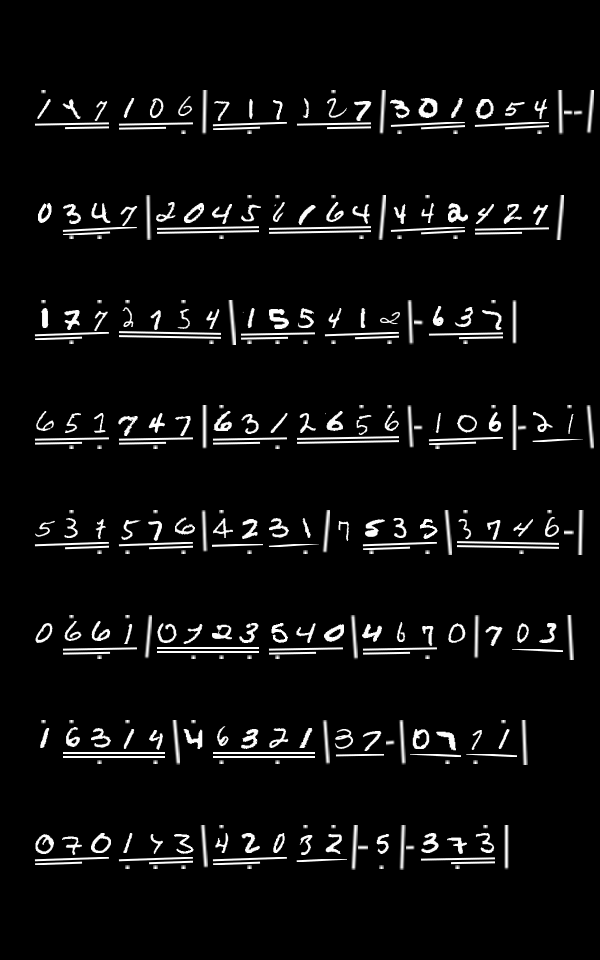 1 4 7 1 0 6 | 7 1 7 1 2 7 | 3 0 1 0 5 4 | - - |
0 3 4 7 | 2 0 4 5 6 1 6 4 | 4 4 2 4 2 7 |
1 7 7 2 1 5 4 | 1 5 5 4 1 2 | - 6 3 7 |
6 5 1 7 4 7 | 6 3 1 2 6 5 6 | - 1 0 6 | - 2 1 |
5 3 7 5 7 6 | 4 2 3 1 | 7 5 3 5 | 3 7 4 6 - |
0 6 6 1 | 0 7 2 3 5 4 0 | 4 6 7 0 | 7 0 3 |
1 6 3 1 4 | 4 6 3 2 1 | 3 7 - | 0 7 7 1 |
0 7 0 1 7 3 | 4 2 0 3 2 - 5 | - 3 7 3 |